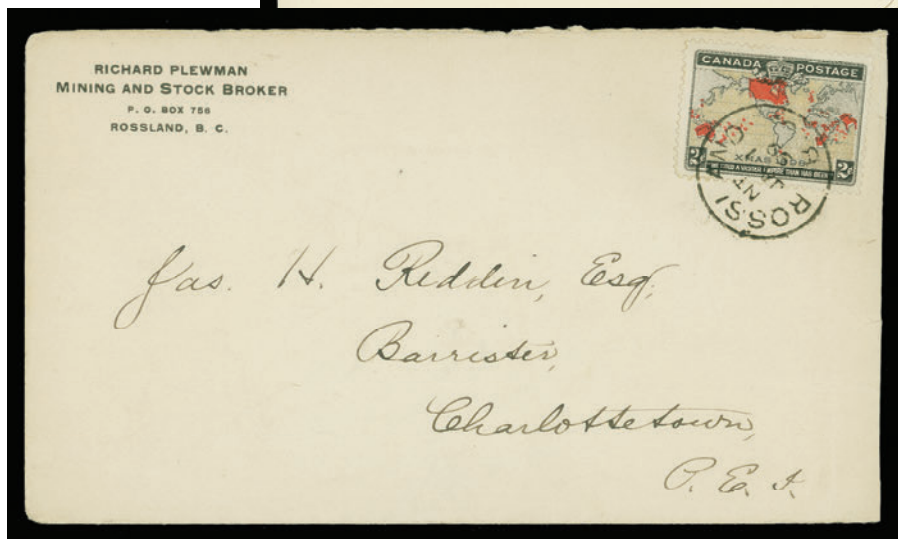 RICHARD PLEWMAN
MINING AND STOCK BROKER
P. O. BOX 756
ROSSLAND, B. C.
CANADA POSTAGE
XMAS 1898
2¢ 2¢
WE HOLD A VASTER EMPIRE THAN HAS BEEN
ROSSLAND
Jas. H. Reddin, Esq.
Barrister,
Charlottetown,
P. E. I.